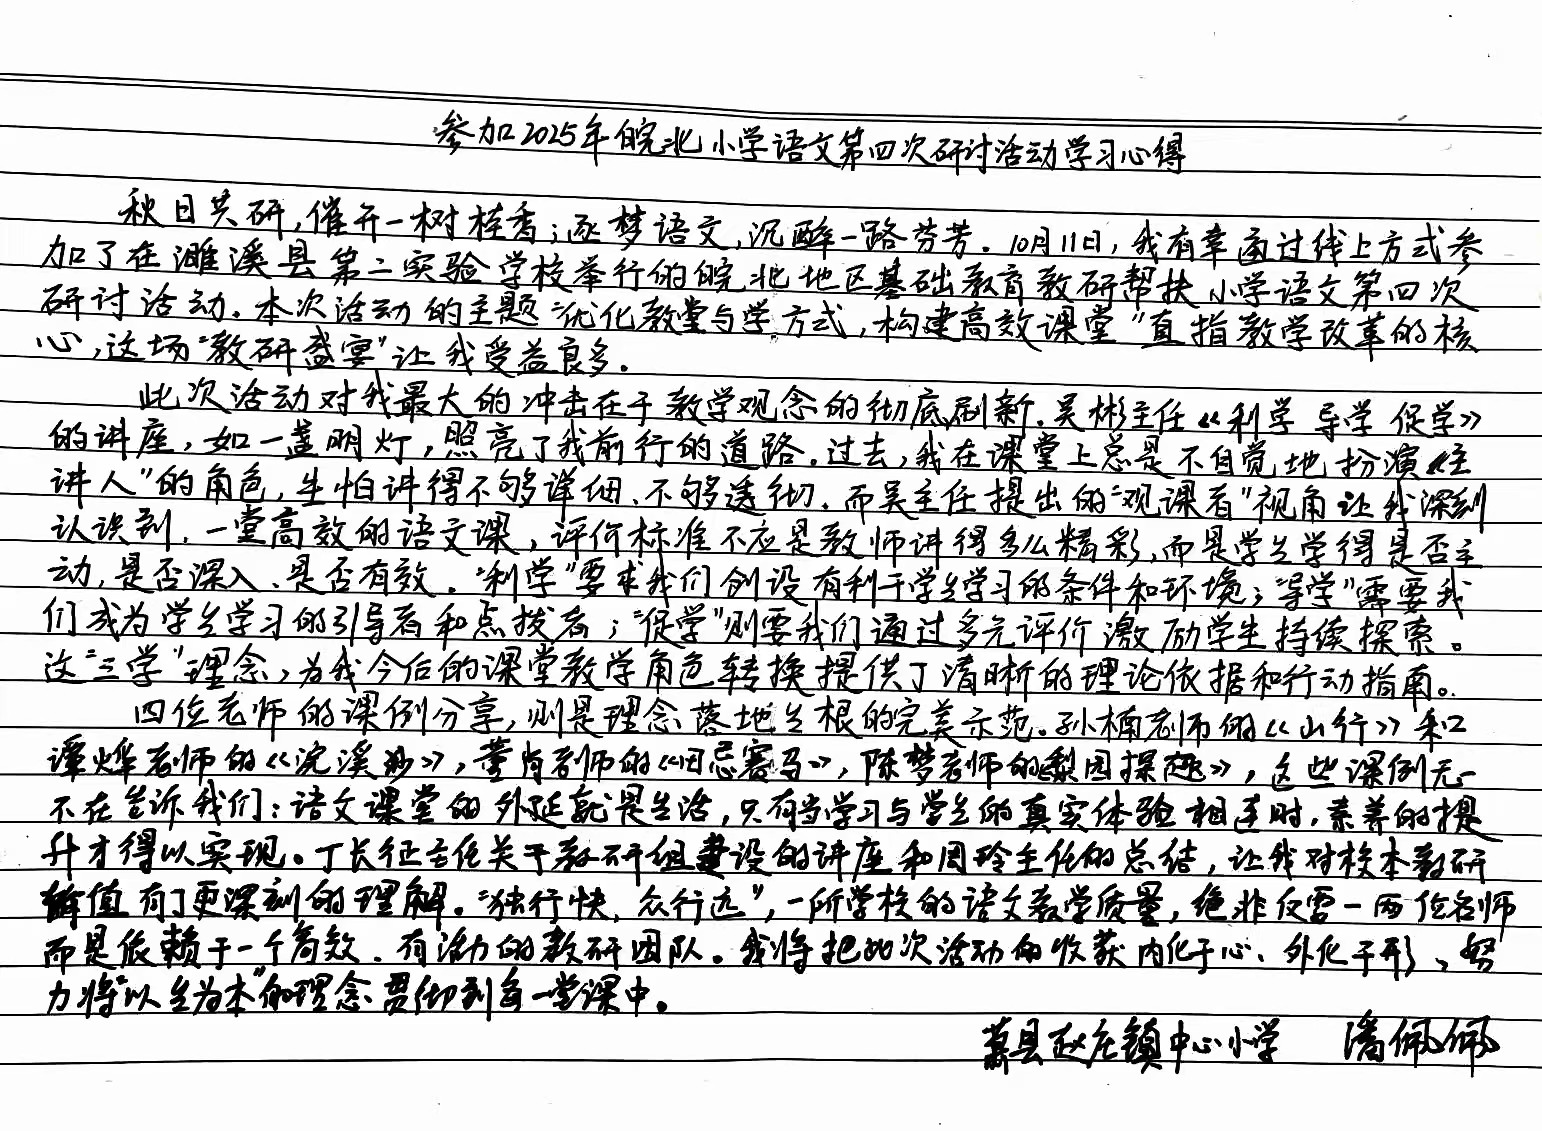 参加2025年皖北小学语文第四次研讨活动学习心得
秋日共研，催开一树桂香；逐梦语文，沉醉一路芬芳。10月11日，我有幸通过线上方式参
加了在濉溪县第二实验学校举行的皖北地区基础教育教研帮扶小学语文第四次
研讨活动。本次活动的主题“优化教堂与学方式，构建高效课堂”直指教学改革的核
心，这场“教研盛宴”让我受益良多。
此次活动对我最大的冲击在于教学观念的彻底刷新。吴彬主任《利学 导学 促学》
的讲座，如一盏明灯，照亮了我前行的道路。过去，我在课堂上总是不自觉地扮演“主
讲人”的角色，生怕讲得不够详细、不够透彻。而吴主任提出的“观课看”视角让我深刻
认识到，一堂高效的语文课，评价标准不应是教师讲得多么精彩，而是学生学得是否主
动，是否深入、是否有效。“利学”要求我们创设有利于学生学习的条件和环境；“导学”需要我
们成为学生学习的引导者和点拨者；“促学”则要我们通过多元评价激励学生持续探索。
这“三学”理念，为我今后的课堂教学角色转换提供了清晰的理论依据和行动指南。
四位老师的课例分享，则是理念落地生根的完美示范。孙楠老师的《山行》和
谭烨老师的《浣溪沙》，董肖老师的《田忌赛马》，陈梦老师的《梨园探趣》，这些课例无
不在告诉我们：语文课堂的外延就是生活，只有当学习与学生的真实体验相连时，素养的提
升才得以实现。丁长征主任关于教研组建设的讲座和周玲主任的总结，让我对校本教研
价值有了更深刻的理解。“独行快，众行远”，一所学校的语文教学质量，绝非仅需一两位名师
而是依赖于一个高效、有活力的教研团队。我将把此次活动的收获内化于心、外化于形、努
力将“以生为本”的理念贯彻到每一堂课中。
萧县赵庄镇中心小学 潘佩佩